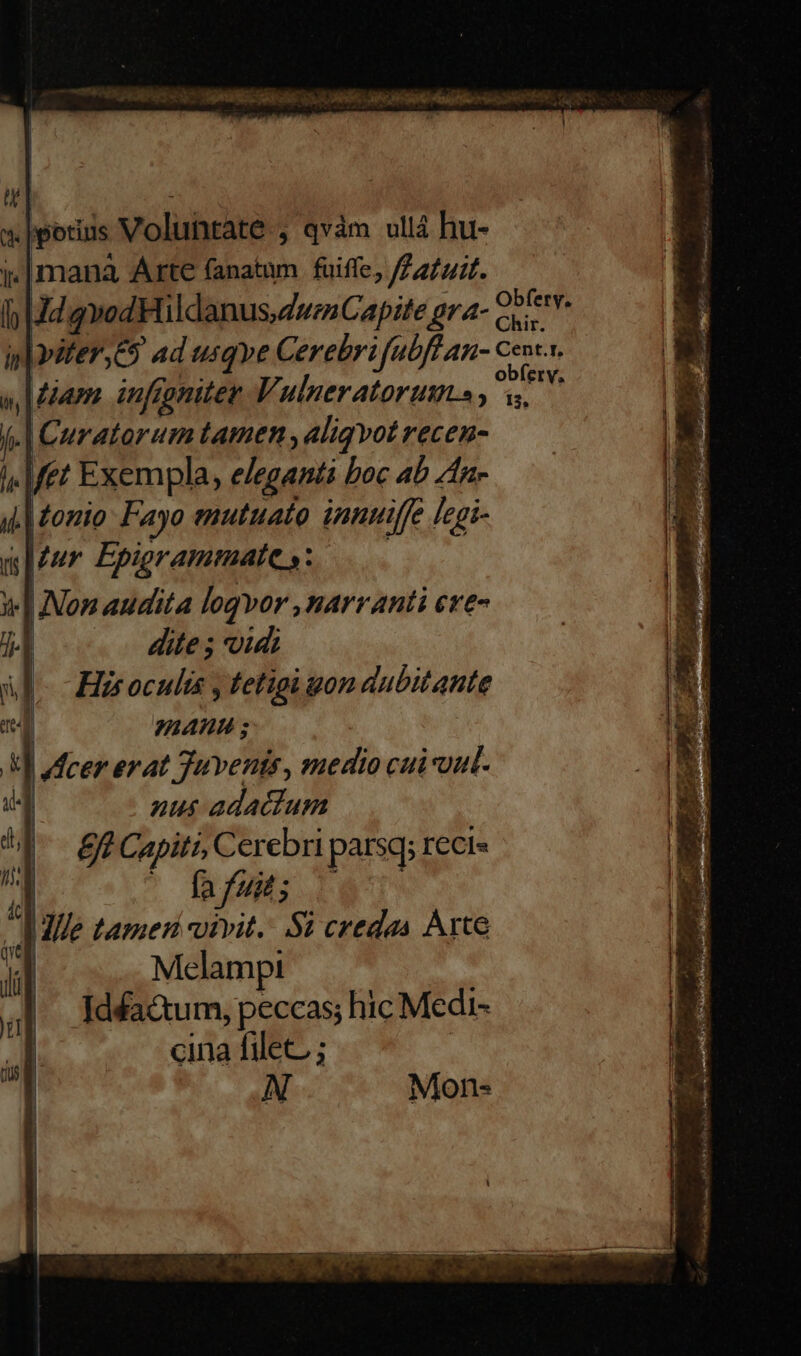 potius Voluntate ; qvàm ullâ hu-
manâ Arte ſanatum fuiſſe, ſtatuit.
Id qvod Hildanus, dum Capite gra-
viter, & ad usqve Cerebri ſubſtan-
tiam inſigniter Vulneratorum,
Curatorum tamen, aliqvot recen-
ſet Exempla, eleganti hoc ab An-
tonio Fayo mutuato innuiſſe legi-
tur Epigrammate:
Obſerv.
Chir.
Cent. 1.
obſerv.
13.
Non audita loqvor, narranti cre-
dite; vidi
His oculis, tetigi non dubitante
manu;
Acer erat Juvenis, medio cui vul-
nus adactum
Eſt Capiti, Cerebri parsq; reci-
ſa fuit;
Ille tamen vivit. Si credas Arte
Melampi
Id factum, peccas; hic Medi-
cina ſilet;
N Mon-